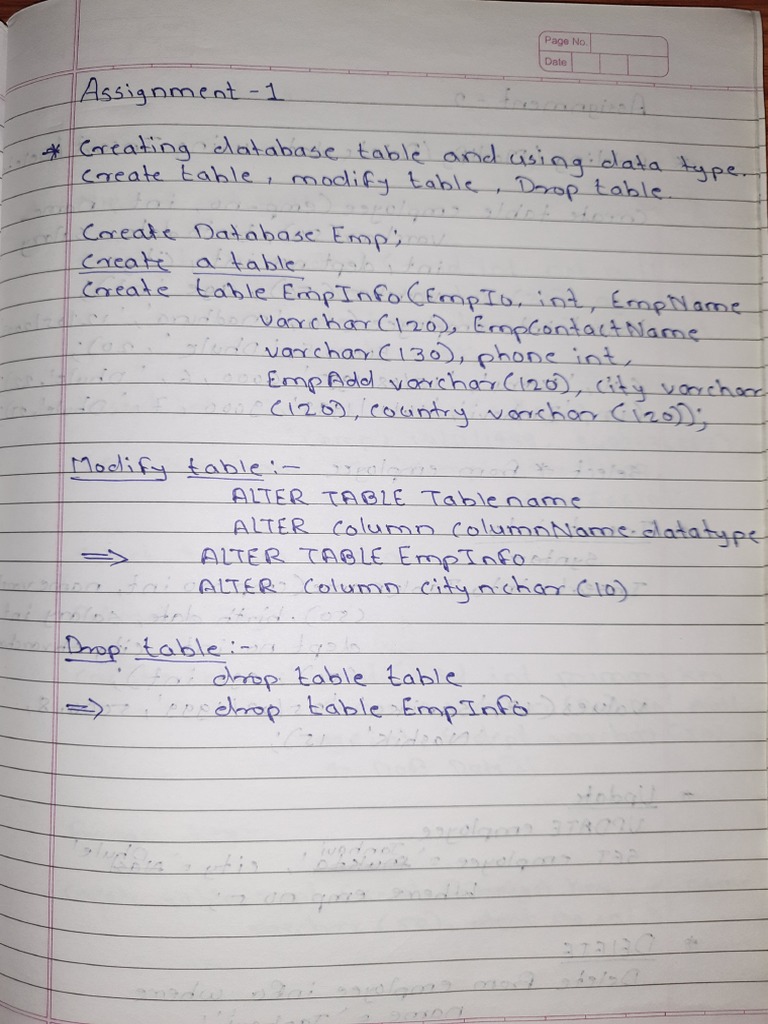 Page No.
Date
Assignment - 1
* Creating database table and using data type.
Create table, modify table, Drop table.
Create Database Emp;
Create a table
Create table EmpInfo(EmpID. int, EmpName
varchar(120), EmpContactName
varchar(130), phone int,
EmpAdd varchar(120), city varchar
(120), country varchar (120));
Modify table :-
ALTER TABLE Tablename
ALTER Column ColumnName datatype
⇒ ALTER TABLE EmpInfo
ALTER Column city nchar (10)
Drop table :-
drop table table
⇒ drop table EmpInfo